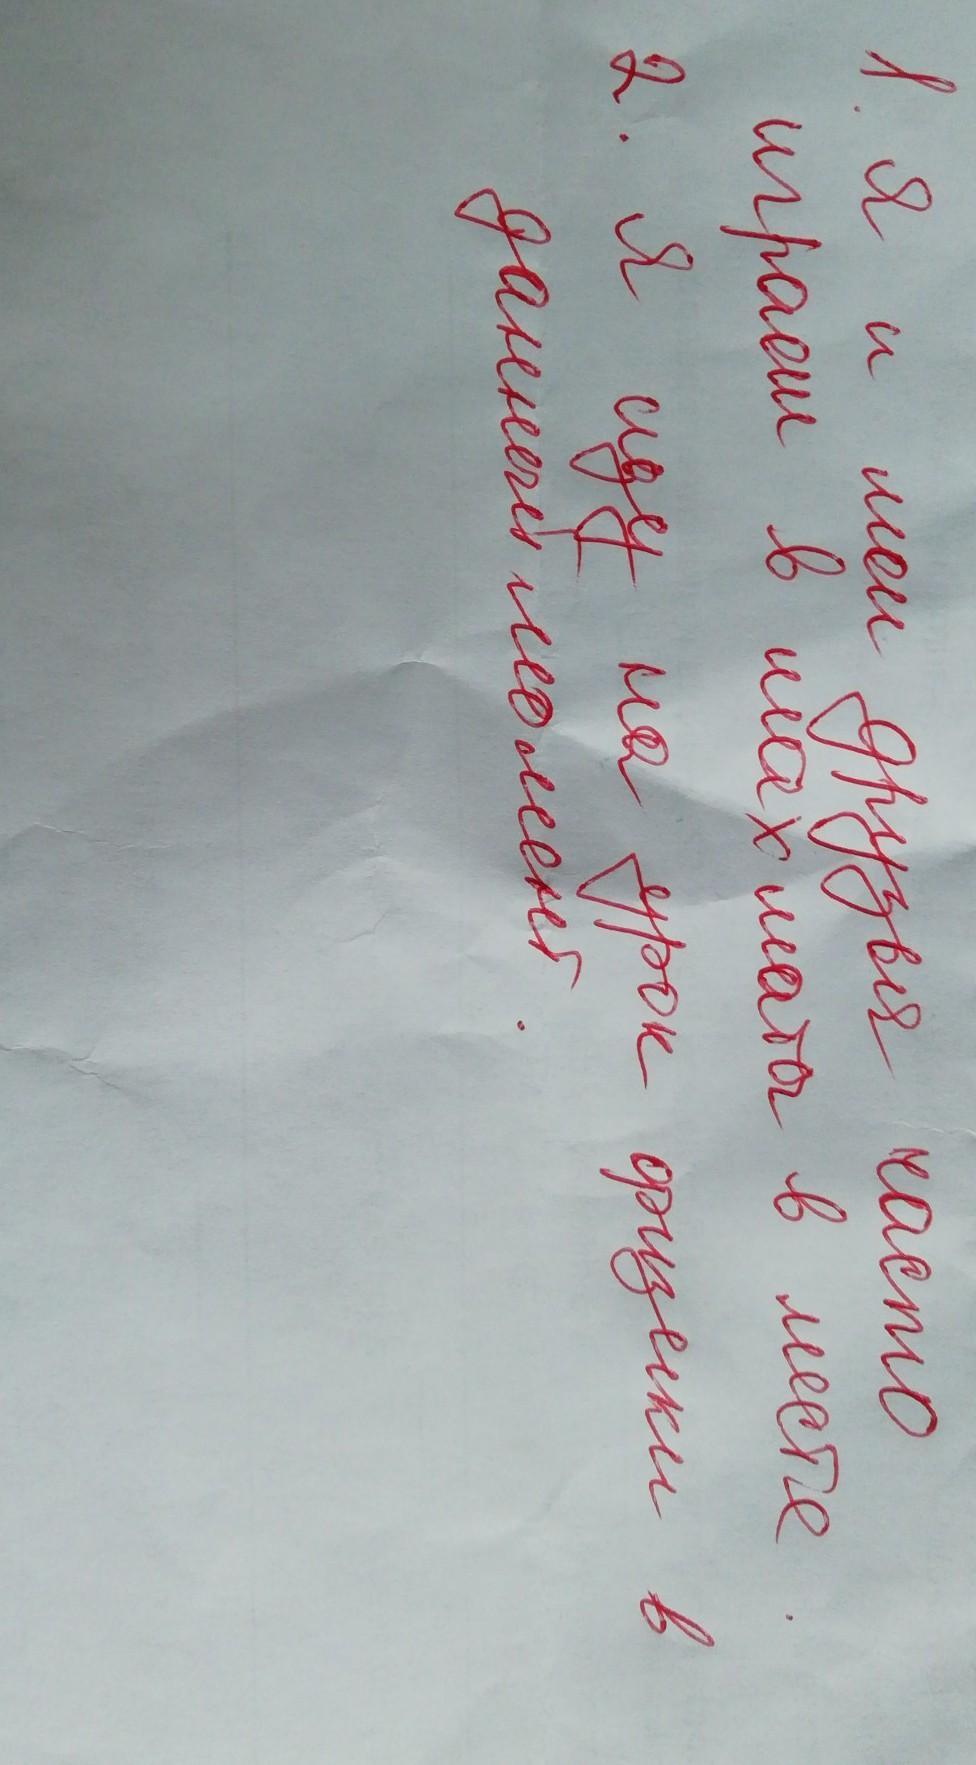 1. Я и мои друзья часто
играем в шахматы в месте.
2. Я иду на урок физики в
данный момент.